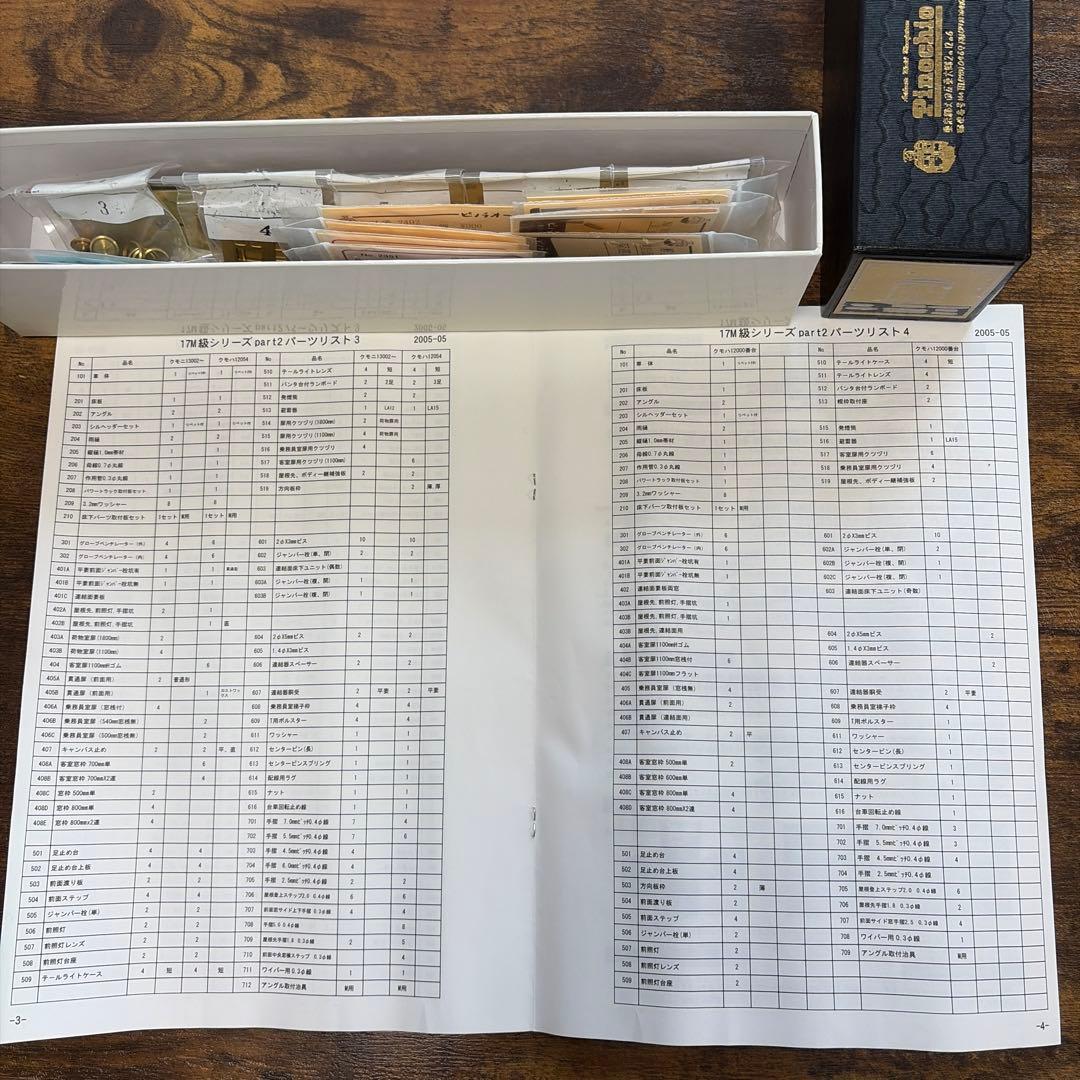 Pinochio
3
4
ピノチオ
17M級シリーズpart2パーツリスト3 2005-05
No 品名 クモニ13002〜 クモハ12054 No 品名 クモニ13002〜 クモハ12054
101 車体 1 1 510 テールライトレンズ 4 短 4 短
511 パンタ台付ランボード 2 2足 2 3足
201 床板 1 1 512 発煙筒 2 2
202 アングル 2 2 513 避雷器 1 LA12 1 LA15
203 シルヘッダーセット 1 1 514 扉用クツヅリ(1800mm) 2 荷物扉用
204 雨樋 2 2 515 扉用クツヅリ(1100mm) 4 荷物扉用
205 縦樋1.0mm帯材 1 1 516 乗務員室扉用クツヅリ 4
206 母線0.7φ丸線 1 1 517 客室扉用クツヅリ(1100mm) 6
207 作用管0.3φ丸線 1 1 518 屋根先、ボディー継補強板 2 2
208 パワートラック取付板セット 1 1 519 方向板枠 2 薄,厚
209 3.2mmワッシャー 8 8
210 床下パーツ取付板セット 1セット M用 1セット M用
301 グローブベンチレーター(外) 4 6 601 2φX3mmビス 10 10
302 グローブベンチレーター(内) 4 6 602 ジャンパー栓(単、閉) 2 2
401A 平妻前面ジャンパー栓坑有 1 1 603 連結面床下ユニット(偶数)
401B 平妻前面ジャンパー栓坑無 1 1 603A ジャンパー栓(複、開) 1 1
401C 連結面妻板 603B ジャンパー栓(複、閉) 1 1
402A 屋根先,前照灯,手摺坑 2 1
402B 屋根先,前照灯,手摺坑 1 直
403A 荷物室扉(1800mm) 2 604 2φX5mmビス 2 2
403B 荷物室扉(1100mm) 4 605 1.4φX3mmビス
404 客室扉1100mmHゴム 6 606 連結器スペーサー 2 2
405A 貫通扉(前面用) 2 普通形
405B 貫通扉(前面用) 1 607 連結器胴受 2 平妻 2 平妻
406A 乗務員室扉(窓桟付) 4 608 乗務員室梯子枠 4 4
406B 乗務員室扉(540mm窓桟無) 2 609 T用ボルスター 4 4
406C 乗務員室扉(500mm窓桟無) 2 611 ワッシャー 1 1
407 キャンバス止め 2 2 平、直 612 センターピン(長) 1 1
408A 客室窓枠 700mm単 6 613 センターピンスプリング 1 1
408B 客室窓枠 700mmX2連 4 614 配線用ラグ 1 1
408C 窓枠 500mm単 2 615 ナット 1 1
408D 窓枠 800mm単 4 616 台車回転止め線 1 1
408E 窓枠 800mmx2連 4 701 手摺 7.0mmピッチ0.4φ線 7 4
702 手摺 5.5mmピッチ0.4φ線 7 6
501 足止め台 4 4 703 手摺 4.5mmピッチ0.4φ線 4 4
502 足止め台上板 4 4 704 手摺 6.0mmピッチ0.4φ線 4 4
503 前面渡り板 2 2 705 手摺 2.5mmピッチ0.4φ線 2 2
504 前面ステップ 4 4 706 屋根登上ステップ2.0 0.4φ線 6 6
505 ジャンパー栓(単) 2 2 707 前面窓サイド上下手摺 0.3φ線 4 4
506 前照灯 2 2 708 手摺5.0 0.4φ線 8
507 前照灯レンズ 2 2 709 屋根先手摺1.8 0.3φ線 2 5
508 前照灯台座 2 2 710 前面中央窓横ステップ 0.3φ線 4
509 テールライトケース 4 短 4 短 711 ワイパー用0.3φ線 1 1
712 アングル取付治具 M用 M用
-3-
17M級シリーズpart2パーツリスト4 2005-05
No 品名 クモハ12000番台 No 品名 クモハ12000番台
101 車体 1 510 テールライトケース 4 短
511 テールライトレンズ 4
201 床板 1 512 パンタ台付ランボード 2
202 アングル 2 513 樋枠取付座 2
203 シルヘッダーセット 1
204 雨樋 2 515 発煙筒 1
205 縦樋1.0mm帯材 1 516 避雷器 1 LA15
206 母線0.7φ丸線 1 517 客室扉用クツヅリ 6
207 作用管0.3φ丸線 1 518 乗務員室扉用クツヅリ 4
208 パワートラック取付板セット 1 519 屋根先、ボディー継補強板 2
209 3.2mmワッシャー 8
210 床下パーツ取付板セット 1セット M用
301 グローブベンチレーター(外) 6 601 2φX3mmビス 10
302 グローブベンチレーター(内) 6 602A ジャンパー栓(単、閉) 2
401A 平妻前面ジャンパー栓坑有 1 602B ジャンパー栓(複、開) 1
401B 平妻前面ジャンパー栓坑無 1 602C ジャンパー栓(複、閉) 1
402 連結面妻板両窓 603 連結面床下ユニット(奇数)
403A 屋根先,前照灯,手摺坑 1
403B 屋根先,前照灯,手摺坑 1
403B 屋根先,連結面用 604 2φX5mmビス 2
404A 客室扉1100mmHゴム 605 1.4φX3mmビス
404B 客室扉1100mm窓桟付 6 606 連結器スペーサー 2
404C 客室扉1100mmフラット
405 乗務員室扉(窓桟無) 4 607 連結器胴受 2 平妻
406A 貫通扉(前面用) 2 608 乗務員室梯子枠 4
406B 貫通扉(連結面用) 609 T用ボルスター 2
407 キャンバス止め 2 平 611 ワッシャー 1
612 センターピン(長) 1
408A 客室窓枠 500mm単 2 613 センターピンスプリング 1
408B 客室窓枠 600mm単 614 配線用ラグ 1
408C 客室窓枠 800mm単 4 615 ナット 1
408D 客室窓枠 800mmX2連 4 616 台車回転止め線 1
701 手摺 7.0mmピッチ0.4φ線 3
702 手摺 5.5mmピッチ0.4φ線 3
501 足止め台 4 703 手摺 4.5mmピッチ0.4φ線 4
502 足止め台上板 4 704 手摺 2.5mmピッチ0.4φ線 2
503 方向板枠 2 薄 705 屋根登上ステップ2.0 0.4φ線 6
504 前面渡り板 2 706 屋根先手摺1.8 0.3φ線 2
505 前面ステップ 4 707 前面サイド窓手摺2.5 0.3φ線 4
506 ジャンパー栓(単) 2 708 ワイパー用0.3φ線 1
507 前照灯 2 709 アングル取付治具 M用
508 前照灯レンズ 2
509 前照灯台座 2
-4-